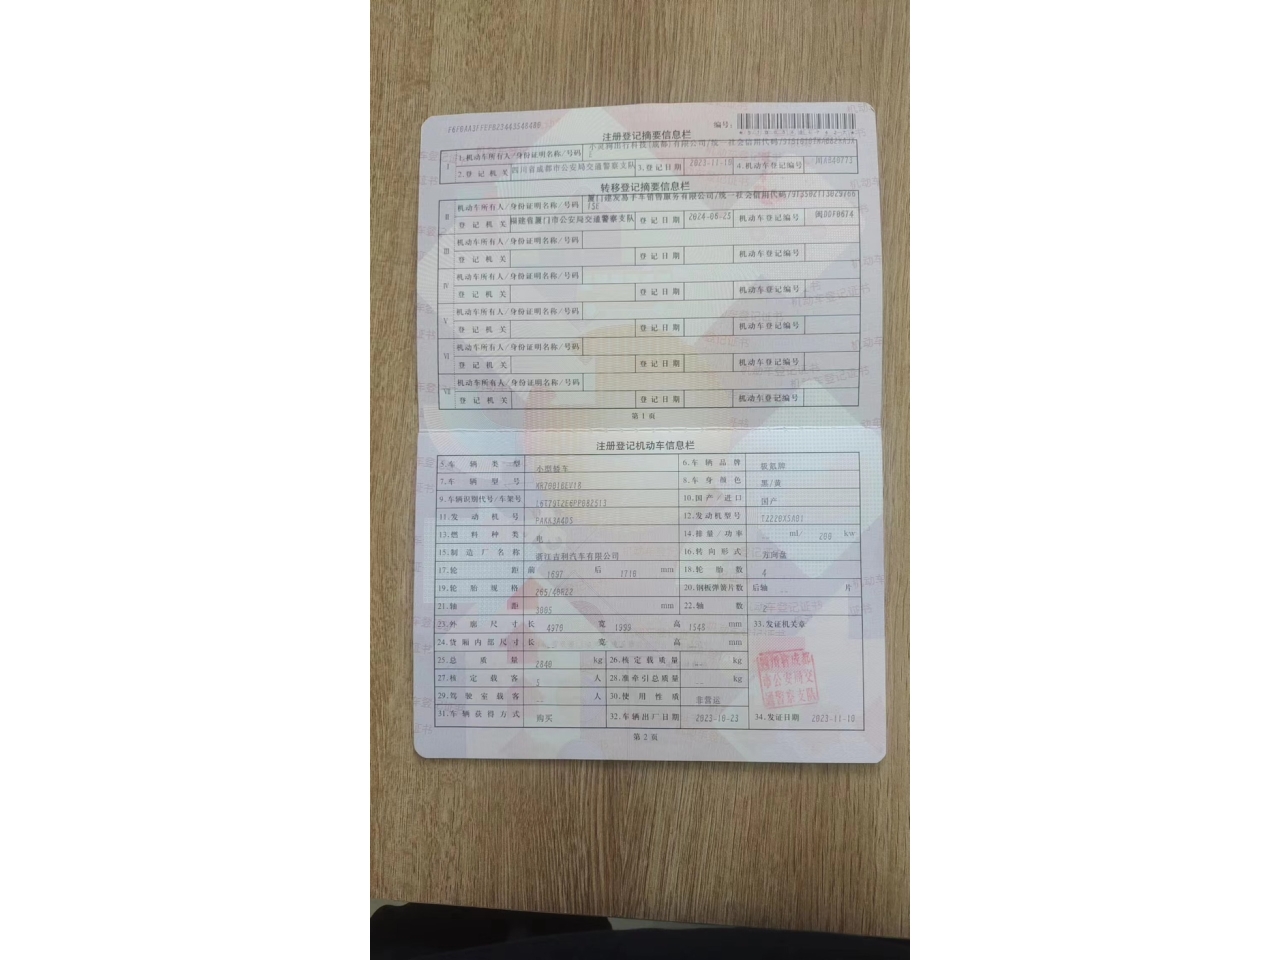 编号:
注册登记摘要信息栏
I 1.机动车所有人/身份证明名称/号码
2.登记机关 四川省成都市公安局交通警察支队 3.登记日期 2023-11-10 4.机动车登记编号
转移登记摘要信息栏
II 机动车所有人/身份证明名称/号码 厦门建发易手车销售服务有限公司/统一社会信用代码/
登记机关 福建省厦门市公安局交通警察支队 登记日期 2024-06-23 机动车登记编号 闽DDF0674
III 机动车所有人/身份证明名称/号码
登记机关 登记日期 机动车登记编号
IV 机动车所有人/身份证明名称/号码
登记机关 登记日期 机动车登记编号
V 机动车所有人/身份证明名称/号码
登记机关 登记日期 机动车登记编号
VI 机动车所有人/身份证明名称/号码
登记机关 登记日期 机动车登记编号
VII 机动车所有人/身份证明名称/号码
登记机关 登记日期 机动车登记编号
第1页
注册登记机动车信息栏
5.车辆类型 小型轿车 6.车辆品牌 极氪牌
7.车辆型号 8.车身颜色 黑/黄
9.车辆识别代号/车架号 10.国产/进口 国产
11.发动机号 12.发动机型号
13.燃料种类 电 14.排量/功率 ml/ 200 kw
15.制造厂名称 浙江吉利汽车有限公司 16.转向形式 方向盘
17.轮距 前 1697 后 1716 mm 18.轮胎数 4
19.轮胎规格 265/40R22 20.钢板弹簧片数 后轴 -- 片
21.轴距 3005 mm 22.轴数 2
23.外廓尺寸 长 4970 宽 1999 高 1548 mm 33.发证机关章
24.货厢内部尺寸 长 宽 高 mm
25.总质量 2840 kg 26.核定载质量 -- kg
27.核定载客 5 人 28.准牵引总质量 -- kg
29.驾驶室载客 -- 人 30.使用性质 非营运
31.车辆获得方式 购买 32.车辆出厂日期 2023-10-23 34.发证日期 2023-11-10
四川省成都
市公安局交
通警察支队
第2页